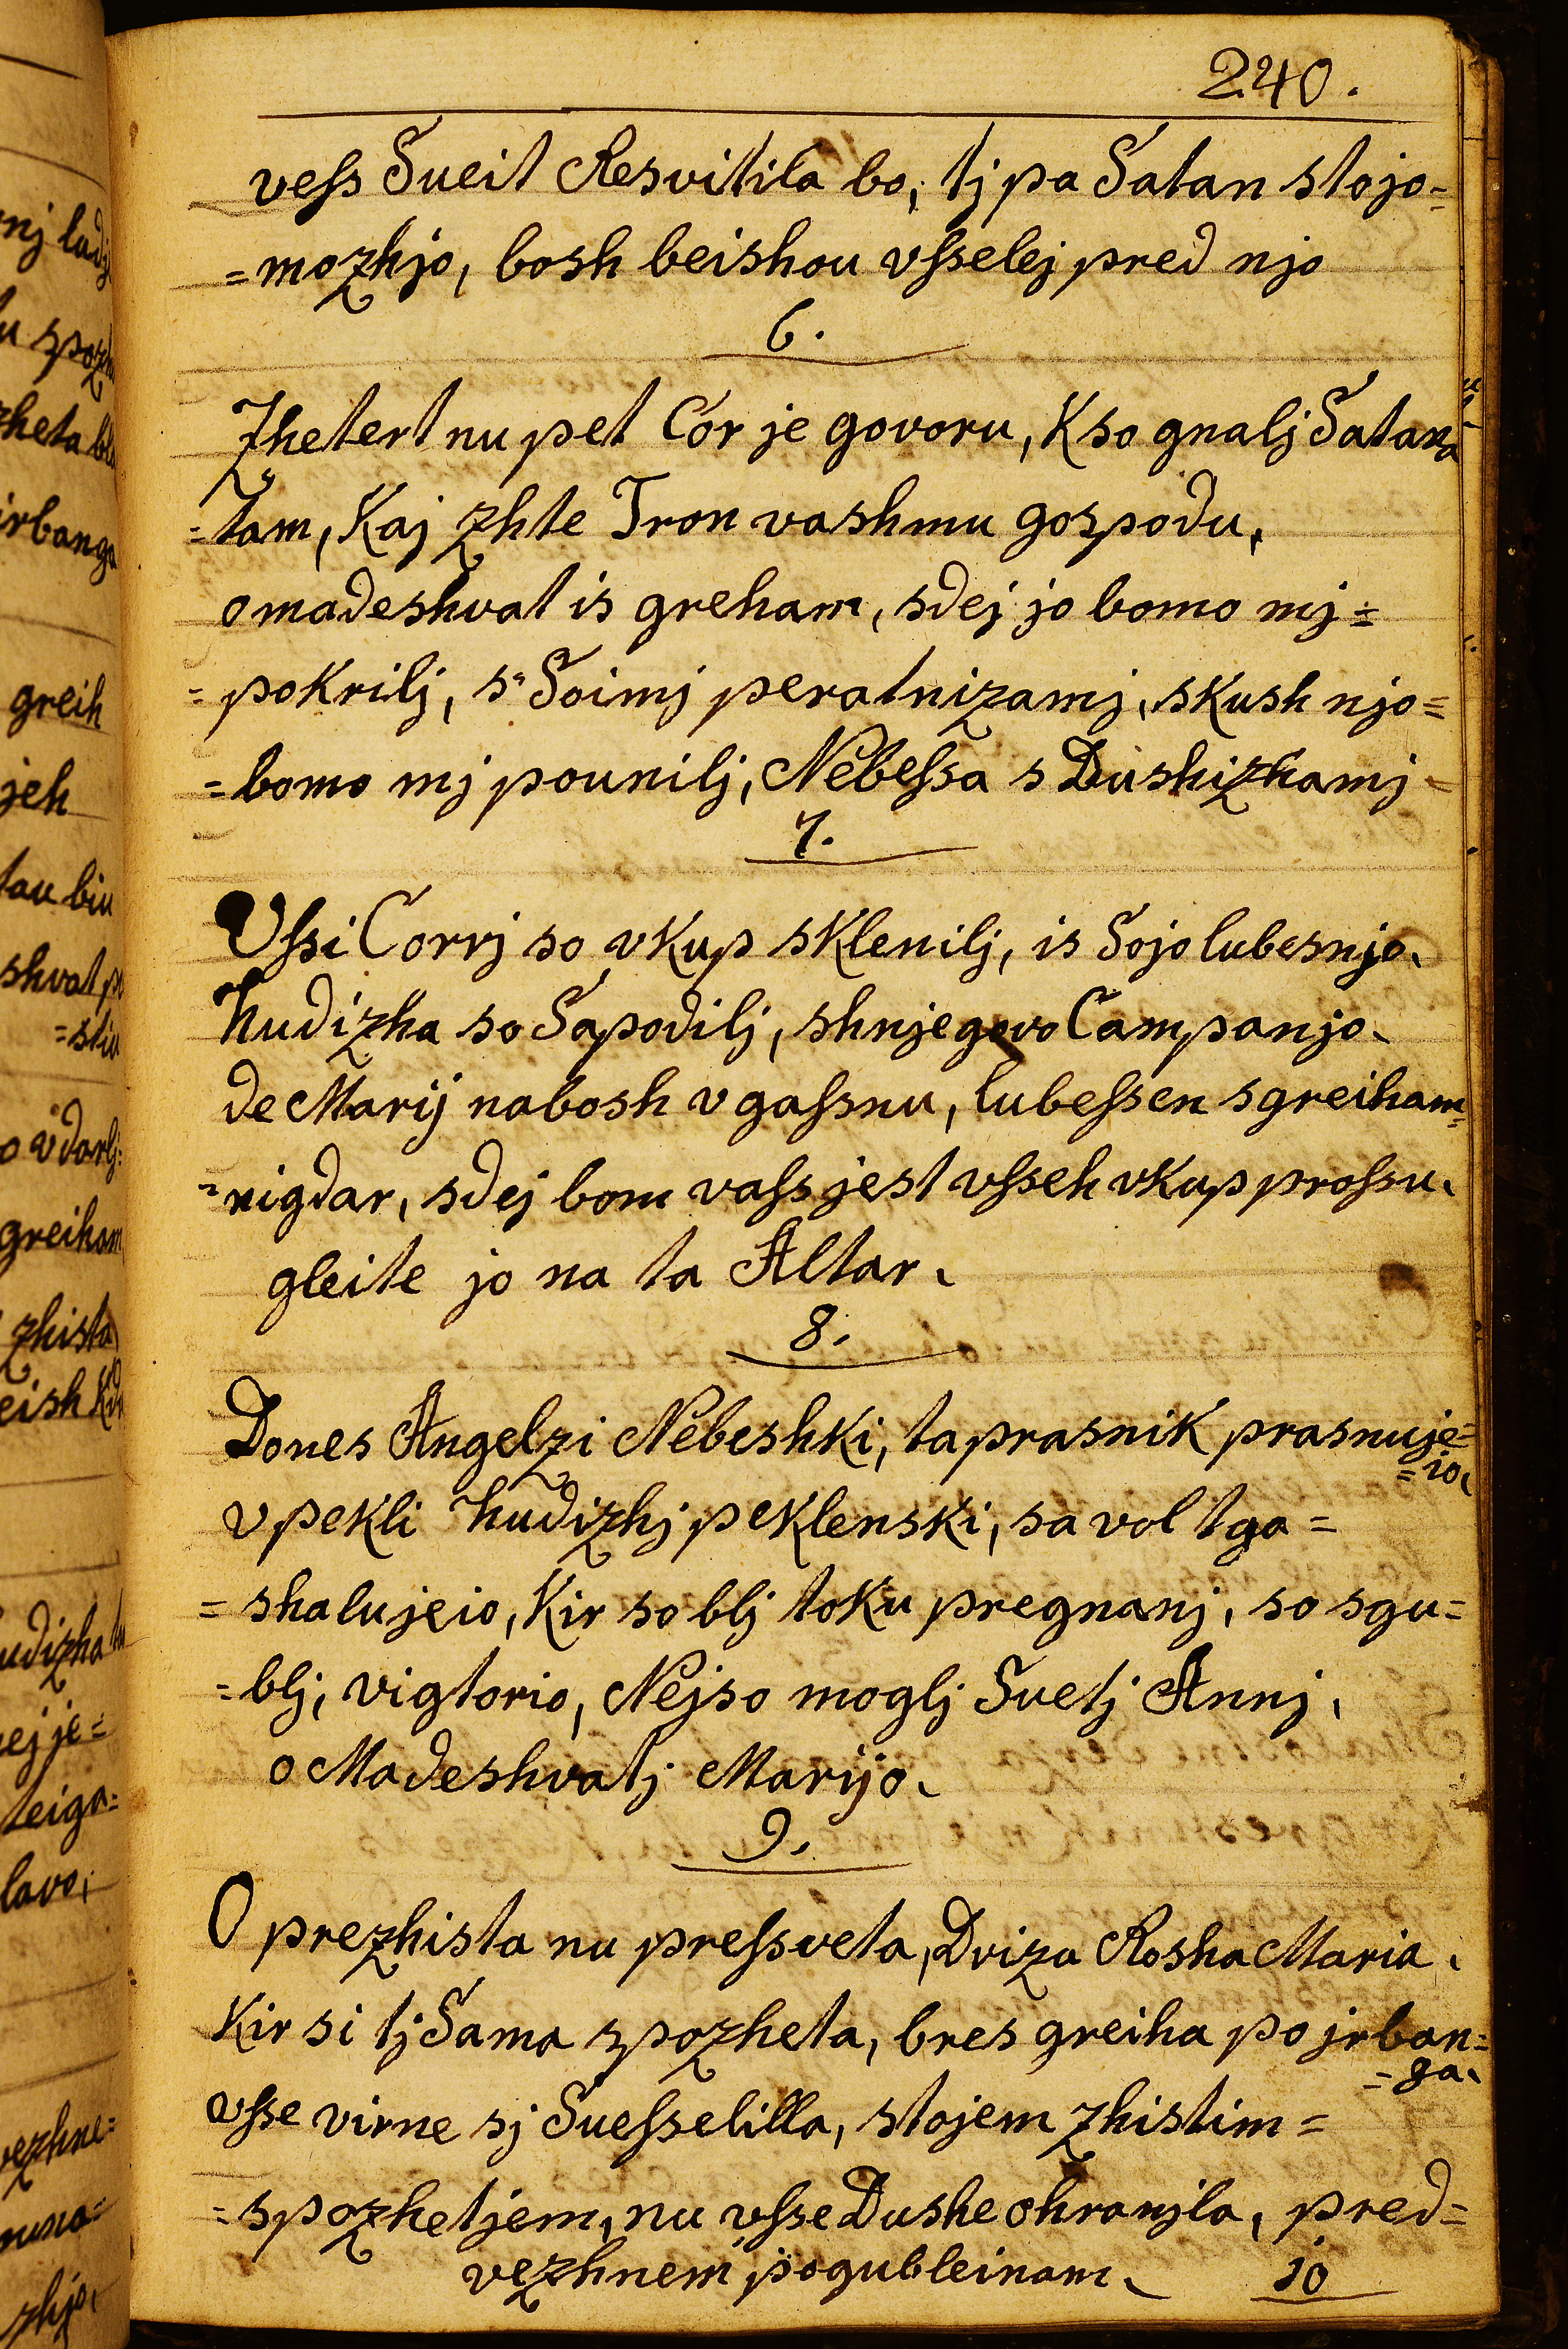 240.
veſs Sueit Resvitila bo, tj pa Satan stojo-
=mozhjo, bosh beishou vſselej pred njo
6.
Zhetert nu pet Cor je govoru, K so gnalj Satana
=tam, Kaj zhte Tron vashmu gospodu,
omadeshvat is greham, sdej jo bomo mj=
=pokrilj, s' Soimj peratnizamj, skush njo=
=bomo mj pounilj, Nebeſsa s Dushizhamj=
7.
Uſsi Corrj so vKup sKlenilj, is Sojo lubesnjo.
hudizha so Sapodilj, shnjegovo Campanjo.
de Marij nabosh v gaſsnu, lubeſsen s greiham=
=nigdar, sdej bom vaſs jest vſseh vKup proſsu.
gleite jo na ta Altar.
8.
Dones Angelzi Nebeshki, ta prasnik prasnuje=
=io.
v peKli hudizhj peKlenski, sa vol tga=
=shalujeio, Kir so blj toKu pregnanj, so sgu=
=blj, vigtorio, Nejso moglj Svetj Annj,
o Madeshvatj Marijo.
9.
O prezhista nu preſsveta, Dviza Rosha Maria.
Kir si tj Sama spozheta, bres greiha po jrban=
=ga.
vſse virne sj Sueſselilla, stojem zhistim=
=spozhetjem, nu vſse Dushe ohranjla, pred=
vezhnem pogubleinam.
10
nj ludj
greih
jeh
tau biu
=stiu
greiham
zhista
teiga=
lavo,